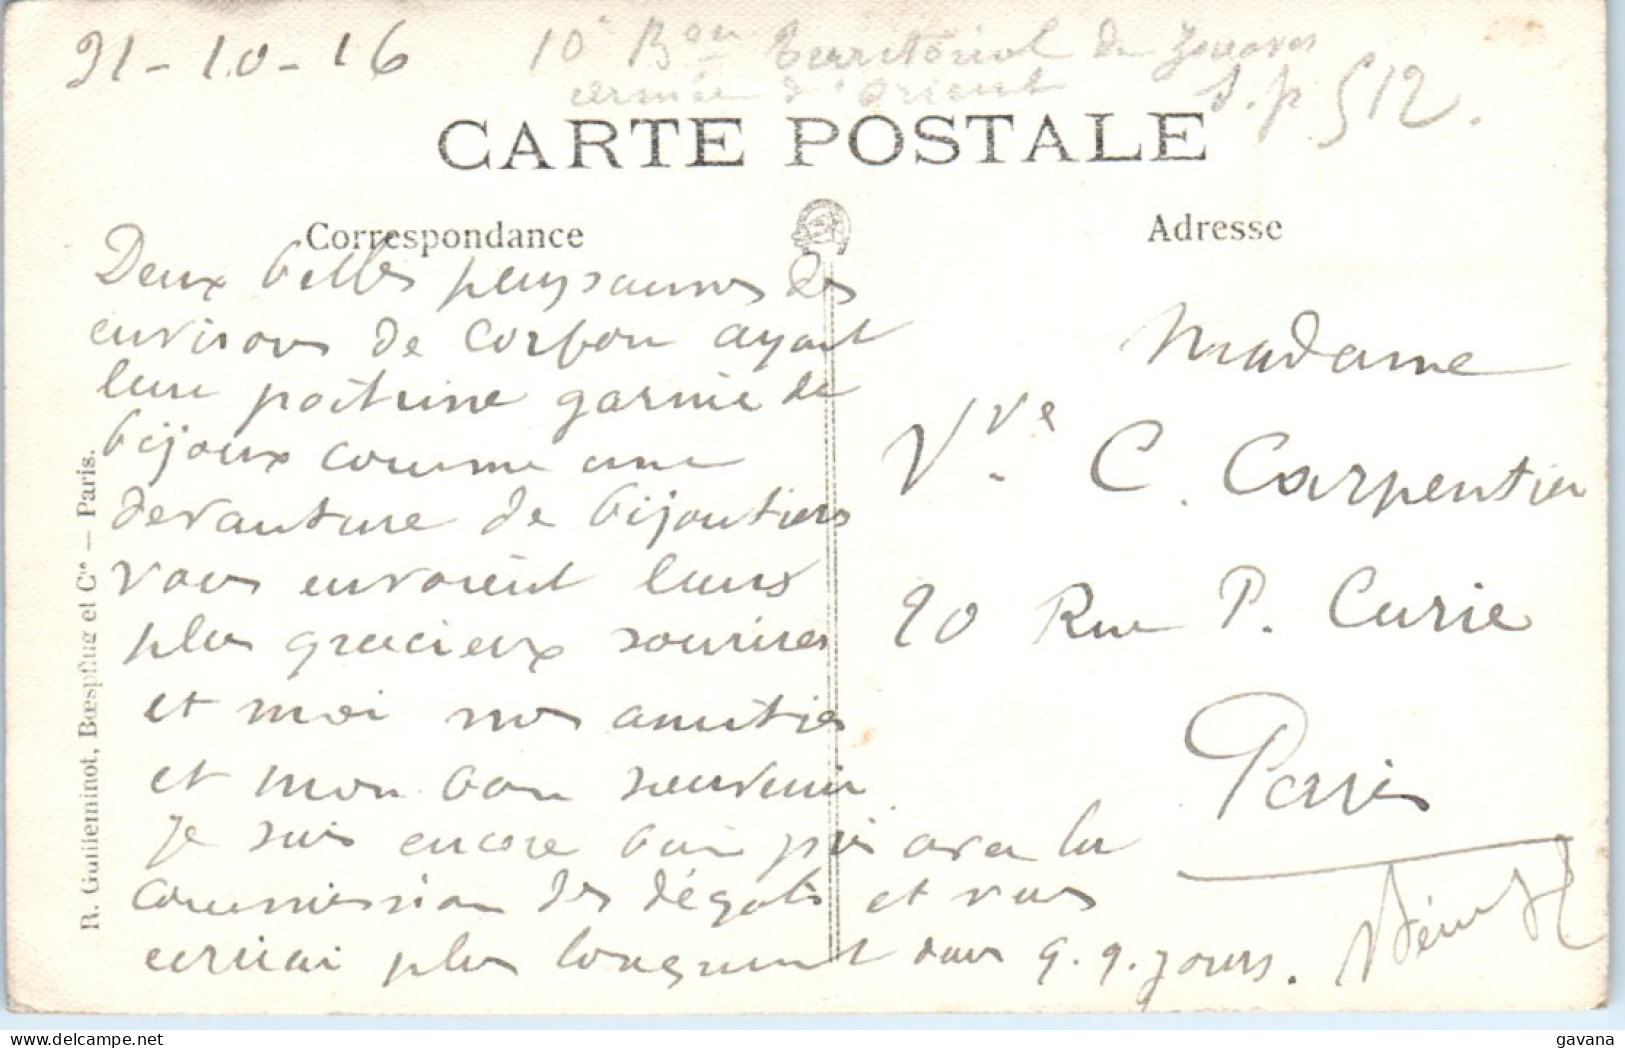 21-10-16
10e Bon Territorial de Zouaves
armée d'Orient S.p 512.
CARTE POSTALE
Correspondance
Adresse
Deux belles paysannes des
environs de Corfou ayant
leur poitrine garnie de
bijoux comme une
devanture de bijoutiers
vous envoient leurs
plus gracieux sourires
et moi mes amitiés
et mon bon souvenir
Je suis encore bien pris avec la
commission des dégats et vous
ecrirai plus longuement dans q.q. jours.
Madame
Vve C. Carpentier
20 Rue P. Curie
Paris
R. Guilleminot, Bœspflug et Cie — Paris.
gavana